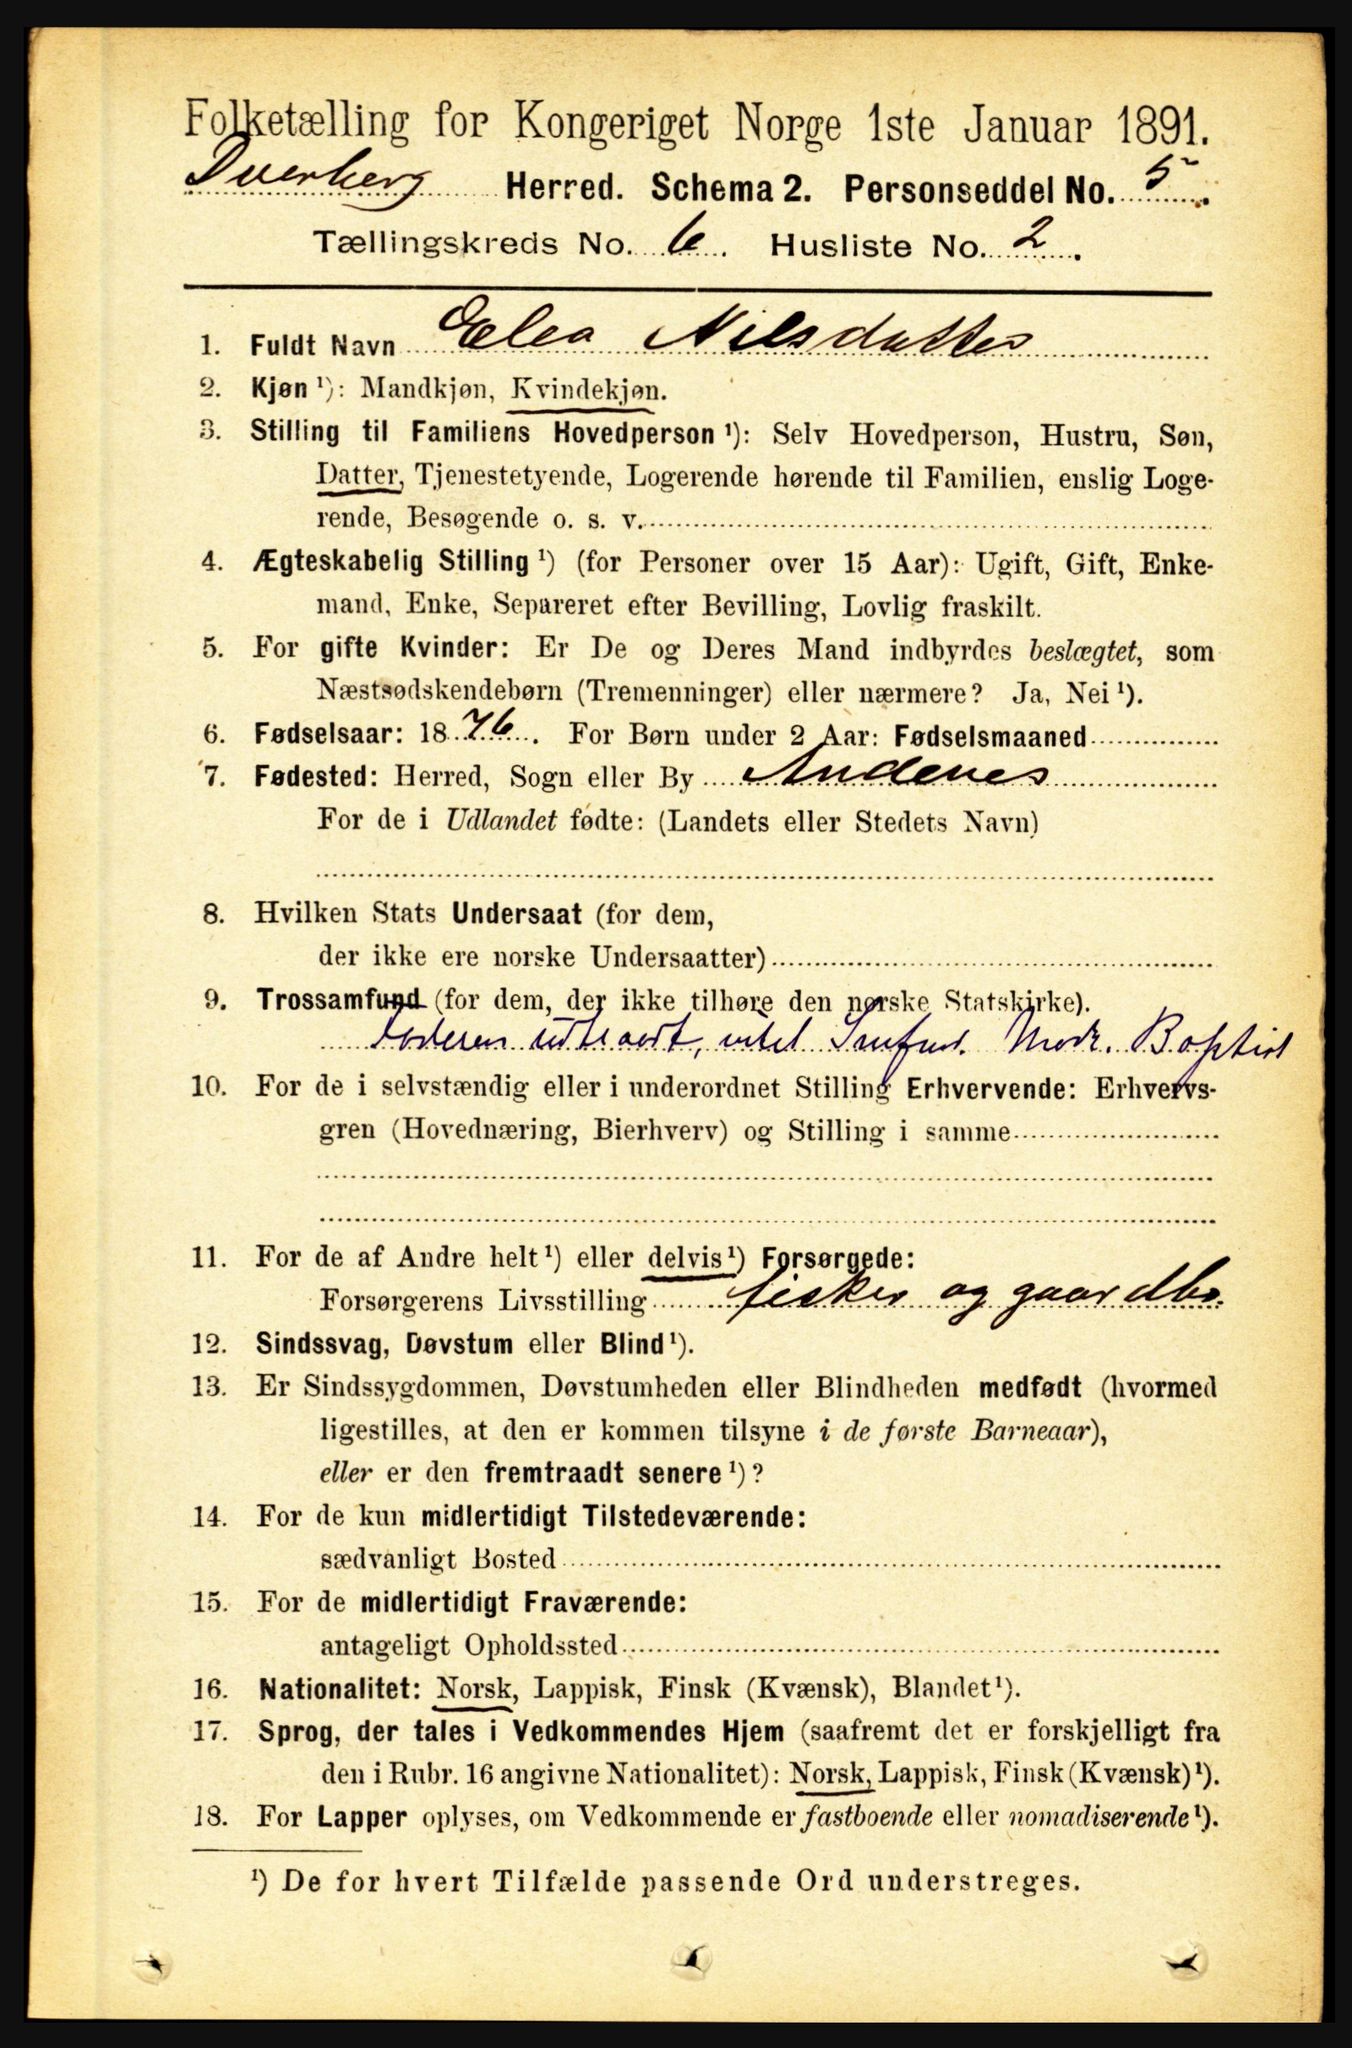 Folketælling for Kongeriget Norge 1ste Januar 1891.
Dverberg Herred. Schema 2. Personseddel No. 5.
Tællingskreds No. 6. Husliste No. 2.
1. Fuldt Navn Elea Nilsdatter
2. Kjøn ¹): Mandkjøn, Kvindekjøn.
3. Stilling til Familiens Hovedperson ¹): Selv Hovedperson, Hustru, Søn,
Datter, Tjenestetyende, Logerende hørende til Familien, enslig Loge-
rende, Besøgende o. s. v.
4. Ægteskabelig Stilling ¹) (for Personer over 15 Aar): Ugift, Gift, Enke-
mand, Enke, Separeret efter Bevilling, Lovlig fraskilt.
5. For gifte Kvinder: Er De og Deres Mand indbyrdes beslægtet, som
Næstsødskendebørn (Tremenninger) eller nærmere? Ja, Nei ¹).
6. Fødselsaar: 1876. For Børn under 2 Aar: Fødselsmaaned
7. Fødested: Herred, Sogn eller By Andenes
For de i Udlandet fødte: (Landets eller Stedets Navn)
8. Hvilken Stats Undersaat (for dem,
der ikke ere norske Undersaatter)
9. Trossamfund (for dem, der ikke tilhøre den norske Statskirke).
Faderen udtraadt, intet Samfund. Mod. Baptist
10. For de i selvstændig eller i underordnet Stilling Erhvervende: Erhvervs-
gren (Hovednæring, Bierhverv) og Stilling i samme
11. For de af Andre helt ¹) eller delvis ¹) Forsørgede:
Forsørgerens Livsstilling fisker og gaardbr.
12. Sindssvag, Døvstum eller Blind ¹).
13. Er Sindssygdommen, Døvstumheden eller Blindheden medfødt (hvormed
ligestilles, at den er kommen tilsyne i de første Barneaar),
eller er den fremtraadt senere ¹)?
14. For de kun midlertidigt Tilstedeværende:
sædvanligt Bosted
15. For de midlertidigt Fraværende:
antageligt Opholdssted
16. Nationalitet: Norsk, Lappisk, Finsk (Kvænsk), Blandet ¹).
17. Sprog, der tales i Vedkommendes Hjem (saafremt det er forskjelligt fra
den i Rubr. 16 angivne Nationalitet): Norsk, Lappisk, Finsk (Kvænsk) ¹).
18. For Lapper oplyses, om Vedkommende er fastboende eller nomadiserende ¹).
¹) De for hvert Tilfælde passende Ord understreges.